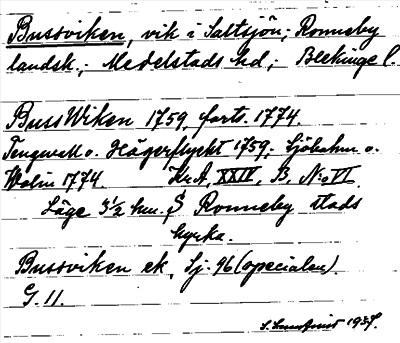 Bussviken, vik i Saltsjön; Ronneby
landsk.; Medelstads hd; Blekinge l.
BussWiken 1759, farts. 1774.
Tengwall o. Hägerflyckt 1759; Sjöbohm o.
Wolin 1774. Kr.A, XXIV, B. No VI.
Läge 3½ km. S Ronneby stads
kyrka.
Bussviken ek, Sj. 96 (specialen).
G. 11.
1937.